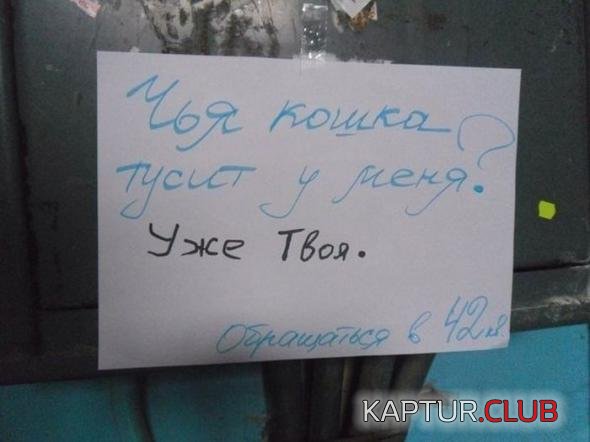 Чья кошка
тусит у меня?
Уже Твоя.
Обращаться в 42 кв.
KAPTUR.CLUB